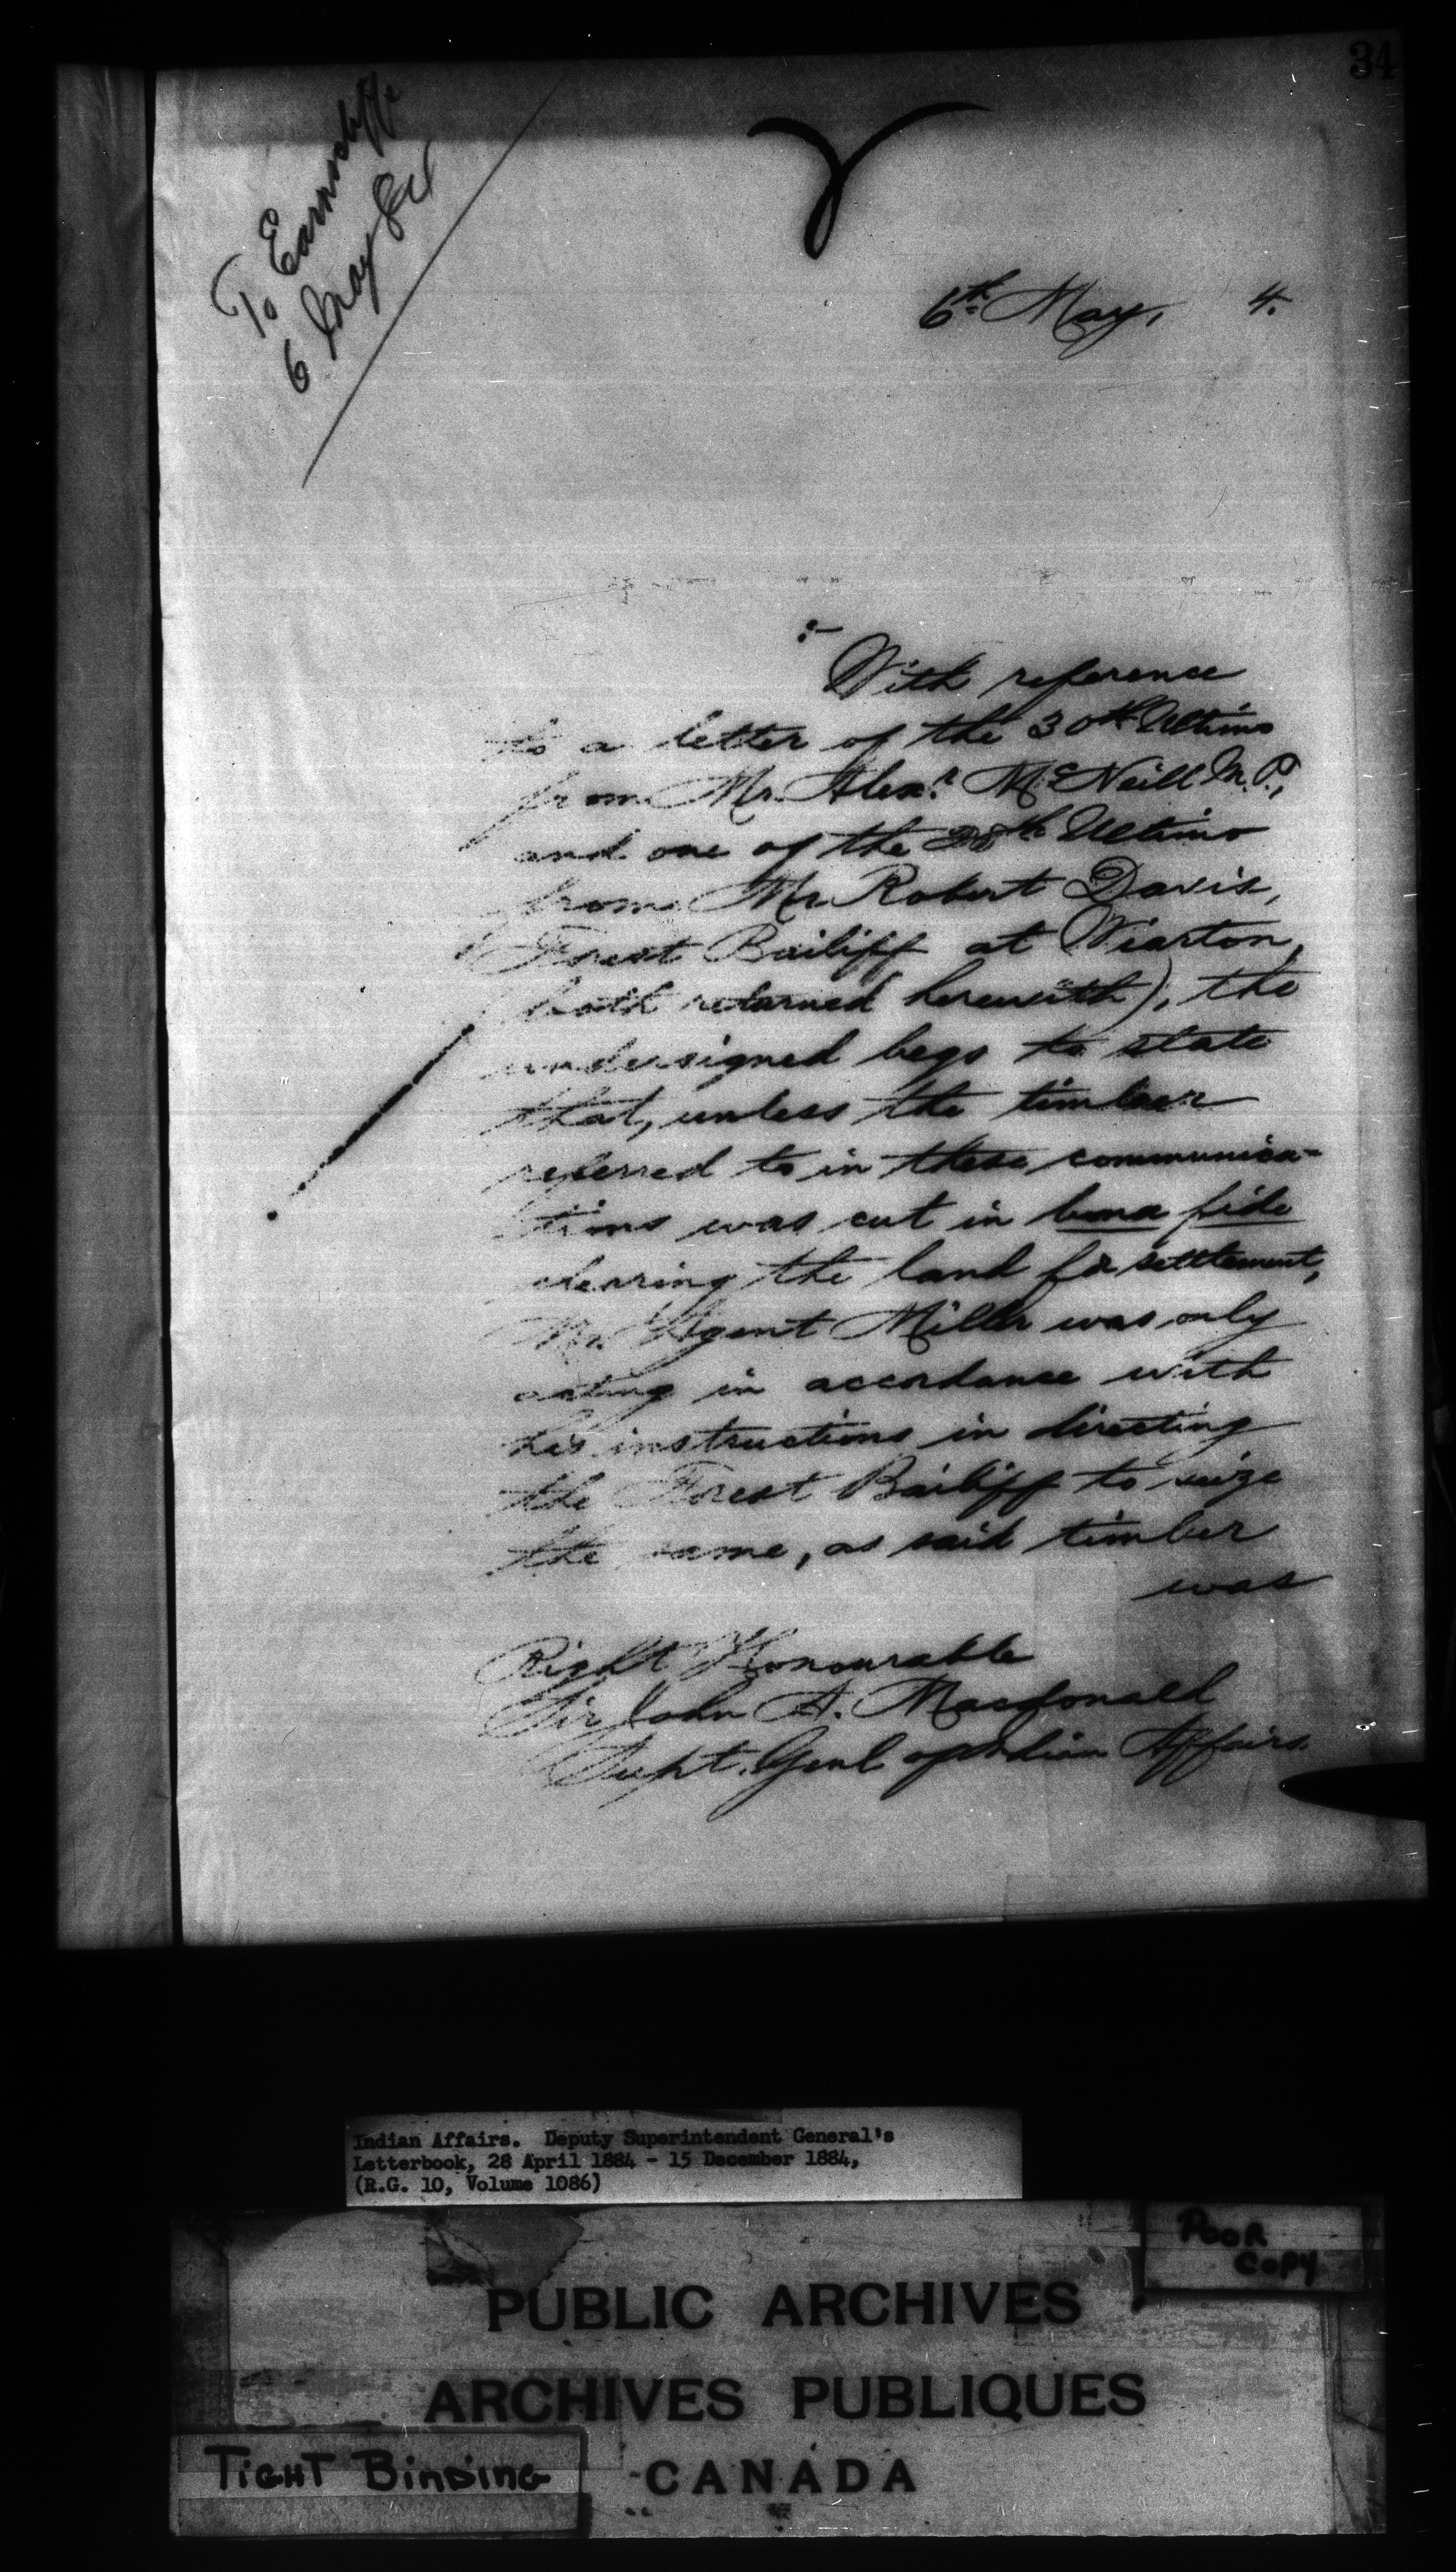 34
To Earnscliffe
6 May 84
6th May, 4.
:-
With reference
to a letter of the 30th Ultimo
from Mr. Alexr. McNeill M.P.,
and one of the 28th Ultimo
from Mr. Robert Davis,
Forest Bailiff at Wiarton,
(both returned herewith), the
undersigned begs to state
that, unless the timber
referred to in these communica=
tions was cut in bona fide
clearing the land for settlement,
Mr. Agent Miller was only
acting in accordance with
his instructions in directing
the Forest Bailiff to seize
the same, as said timber
was
Right Honourable
Sir John A. Macdonald
Supt. Genl of Indian Affairs.
Indian Affairs. Deputy Superintendent General's
Letterbook, 28 April 1884 - 15 December 1884,
(R.G. 10, Volume 1086)
POOR
COPY
PUBLIC ARCHIVES
ARCHIVES PUBLIQUES
TIGHT BINDING
CANADA